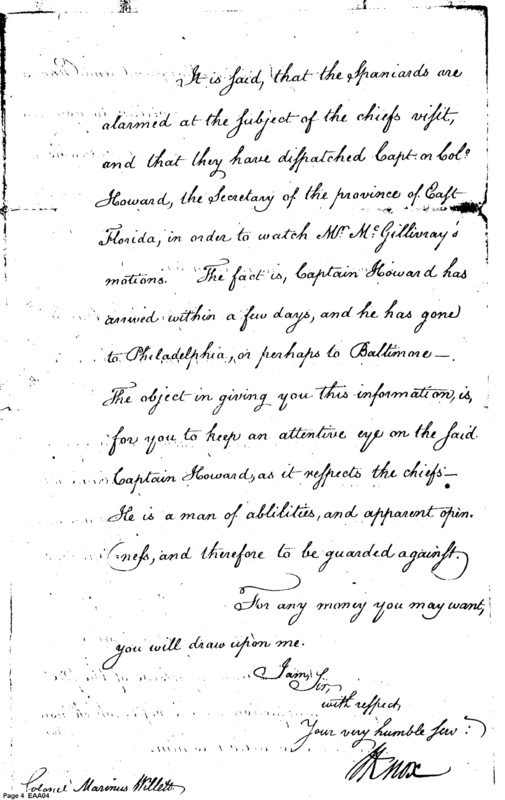 It is said, that the Spaniards are
alarmed at the subject of the chiefs visit,
and that they have dispatched Capt. or Colo.
Howard, the Secretary of the province of East
Florida, in order to watch Mr. McGillivray's
motions. The fact is, Captain Howard has
arrived within a few days, and he has gone
to Philadelphia, or perhaps to Baltimore—.
The object in giving you this information, is,
for you to keep an attentive eye on the said
Captain Howard, as it respects the chiefs—
He is a man of ablilities, and apparent open.
ness, and therefore to be guarded against.
For any money you may want,
you will draw upon me.
I am, Sir,
with respect
Your very humble serv:
HKnox
Colonel Marinus Willett
Page 4 EAA04